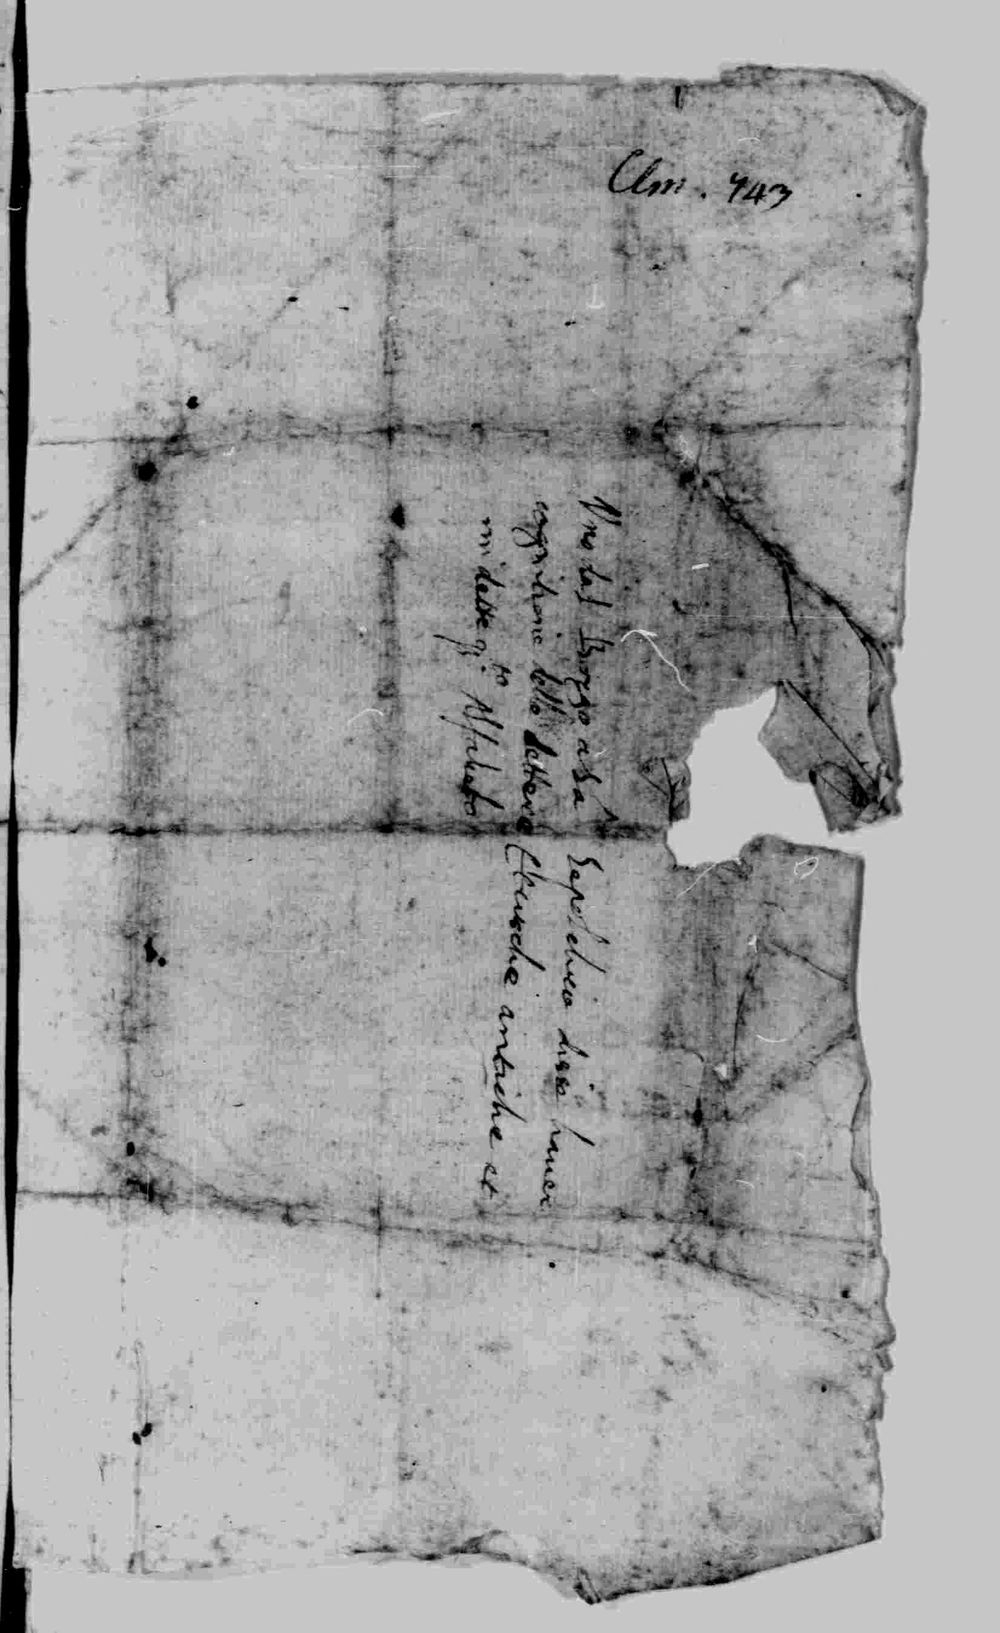 Clm. 743
Uno dal Borgo a San Sepolchro disse haver
cognitione delle lettere Etrusche antiche et
mi dette q.to Alfabeto